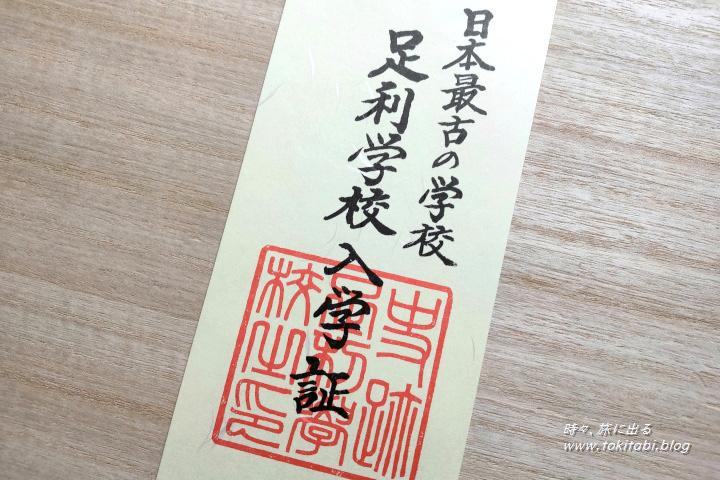 日本最古の学校
足利学校入学証
史跡
足利学
校之印
時々、旅に出る
www.tokitabi.blog